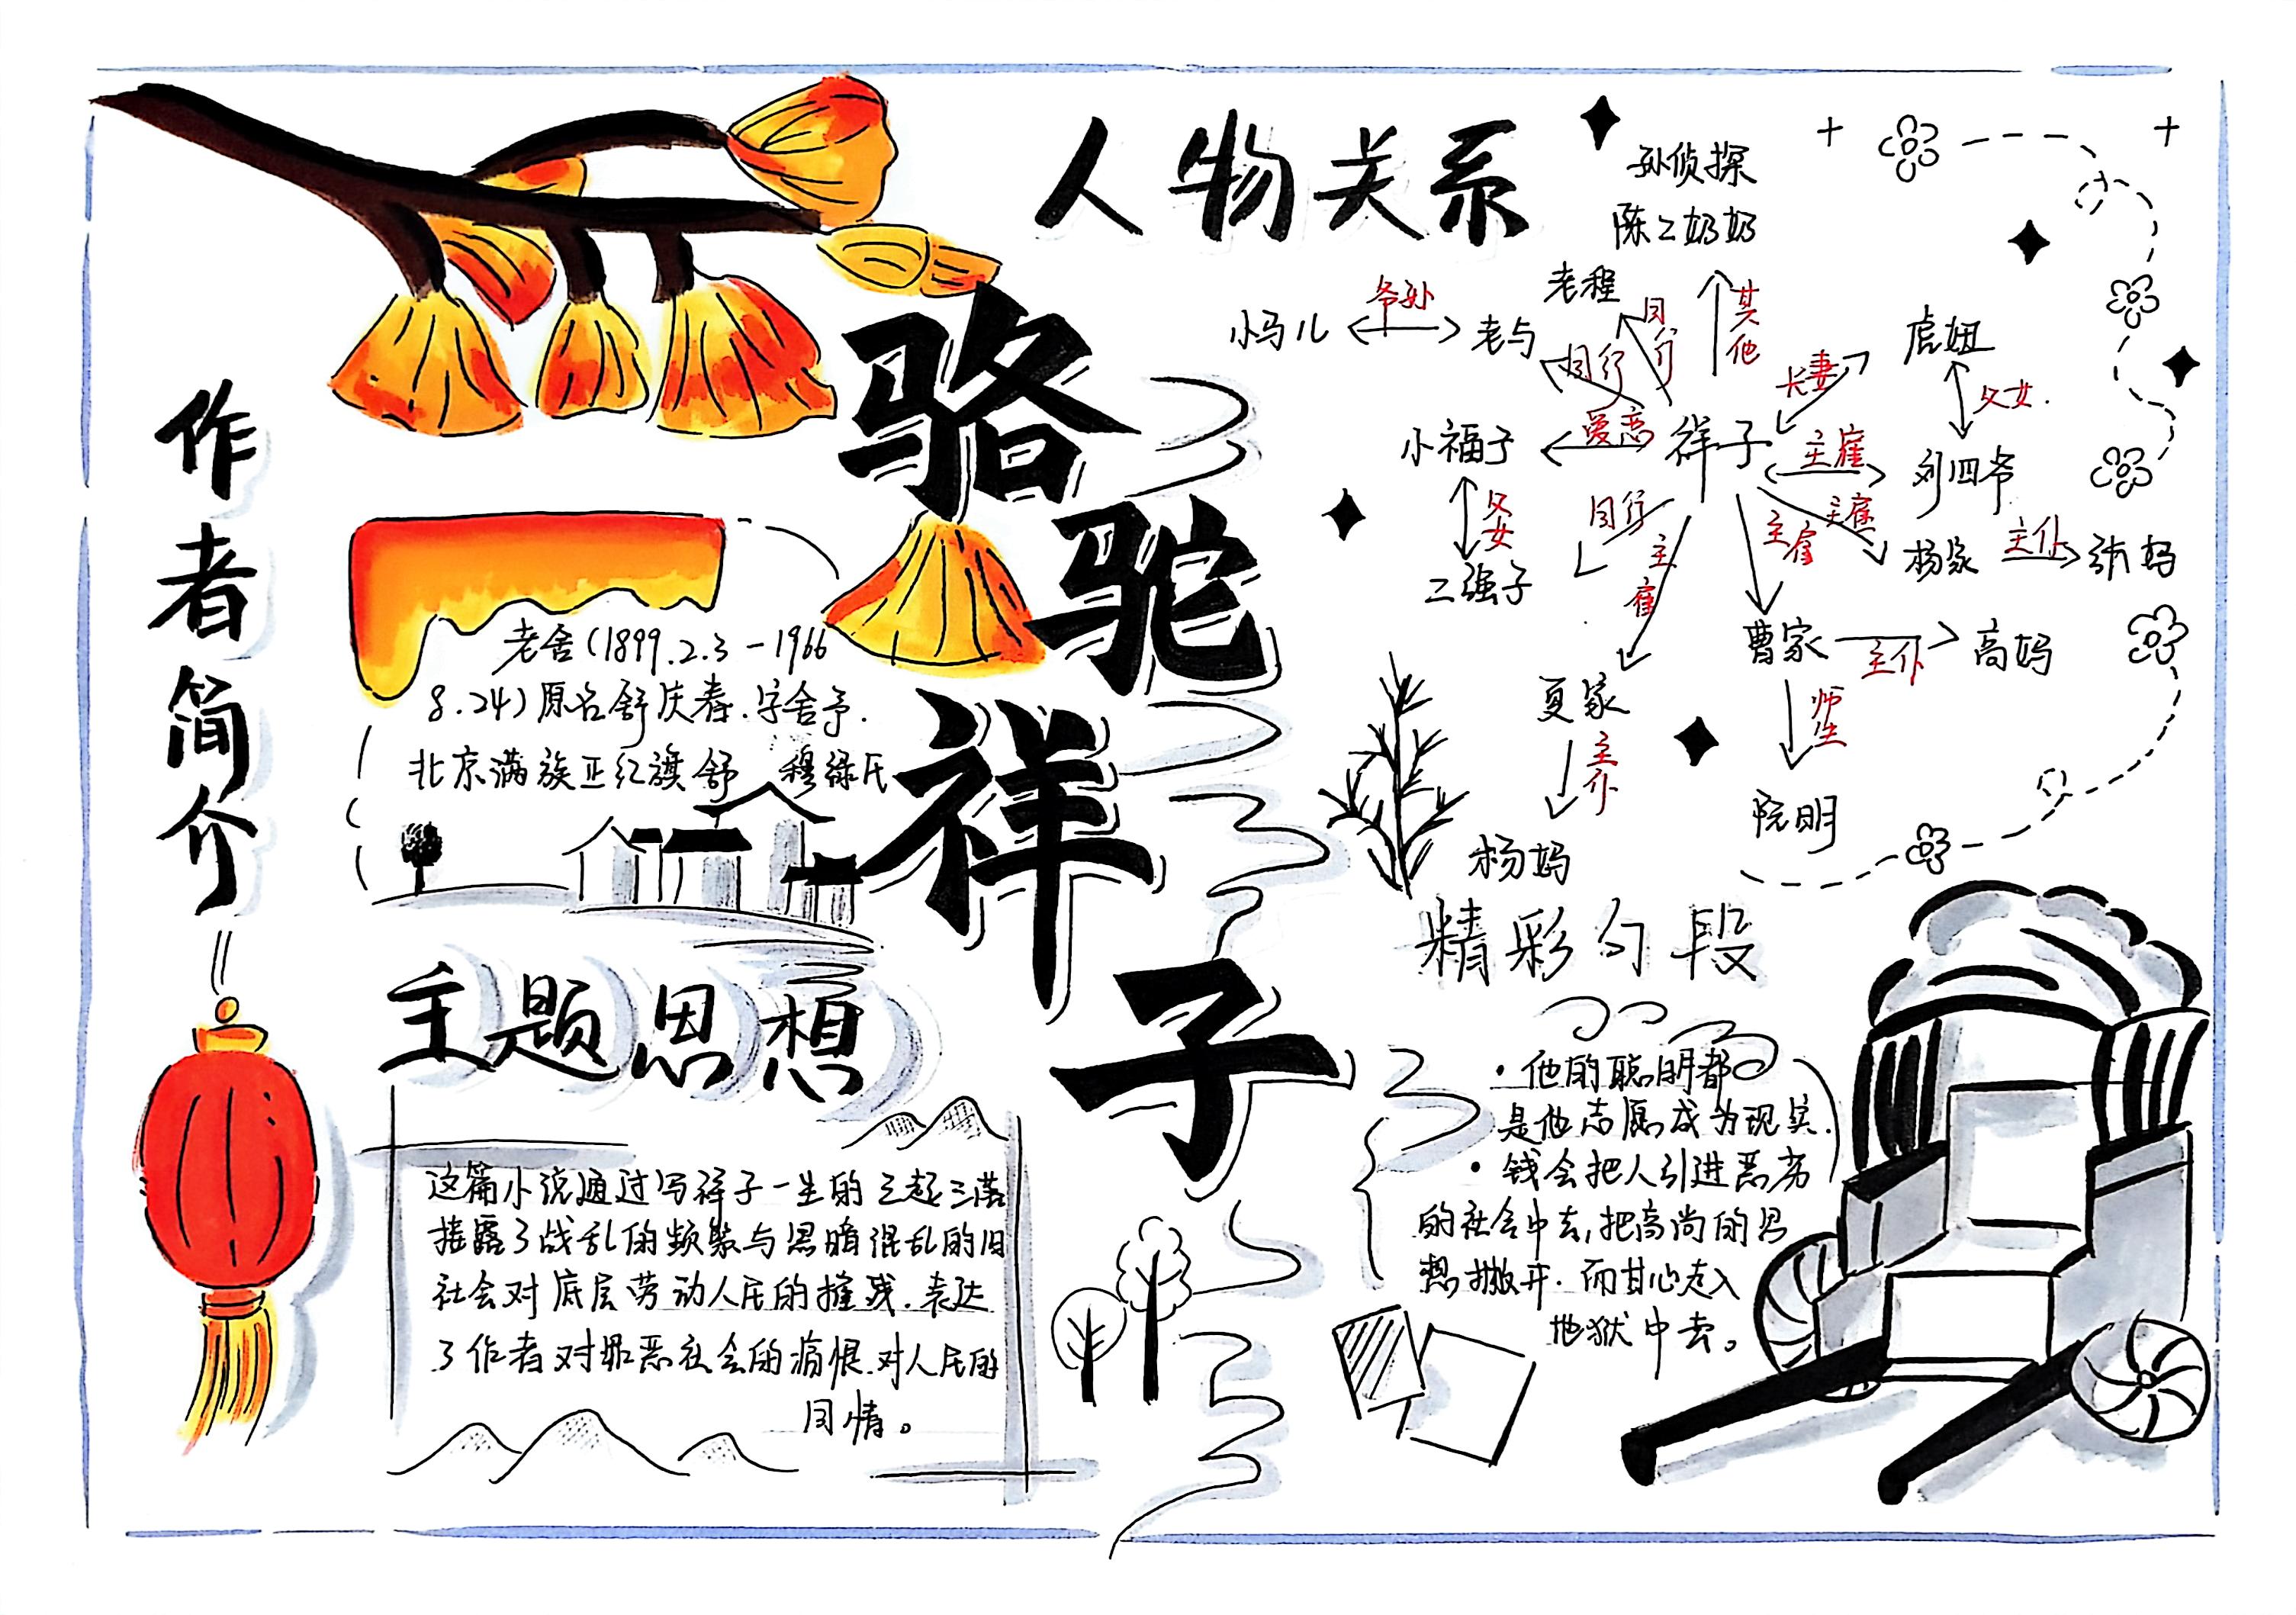 骆驼祥子
作者简介
老舍(1899.2.3-1966
8.24)原名舒庆春.字舍予.
北京满族正红旗舒 穆禄氏
主题思想
这篇小说通过写祥子一生的三起三落
揭露了战乱的频繁与黑暗混乱的旧
社会对底层劳动人民的摧残.表达
了作者对罪恶社会的痛恨.对人民的
同情。
人物关系
孙侦探
陈二奶奶
其他
老程
同行
小马儿
爷孙
老马
同行
虎妞
夫妻
父女.
小福子
爱恋
祥子
主雇
刘四爷
父女
二强子
同行
主雇
主雇
主雇
杨家
主仆
张妈
夏家
主仆
杨妈
曹家
主仆
高妈
师生
阮明
精彩句段
·他的聪明都
是他志愿成为现实.
·钱会把人引进恶劣
的社会中去,把高尚的思
想撇开.而甘心走入
地狱中去。